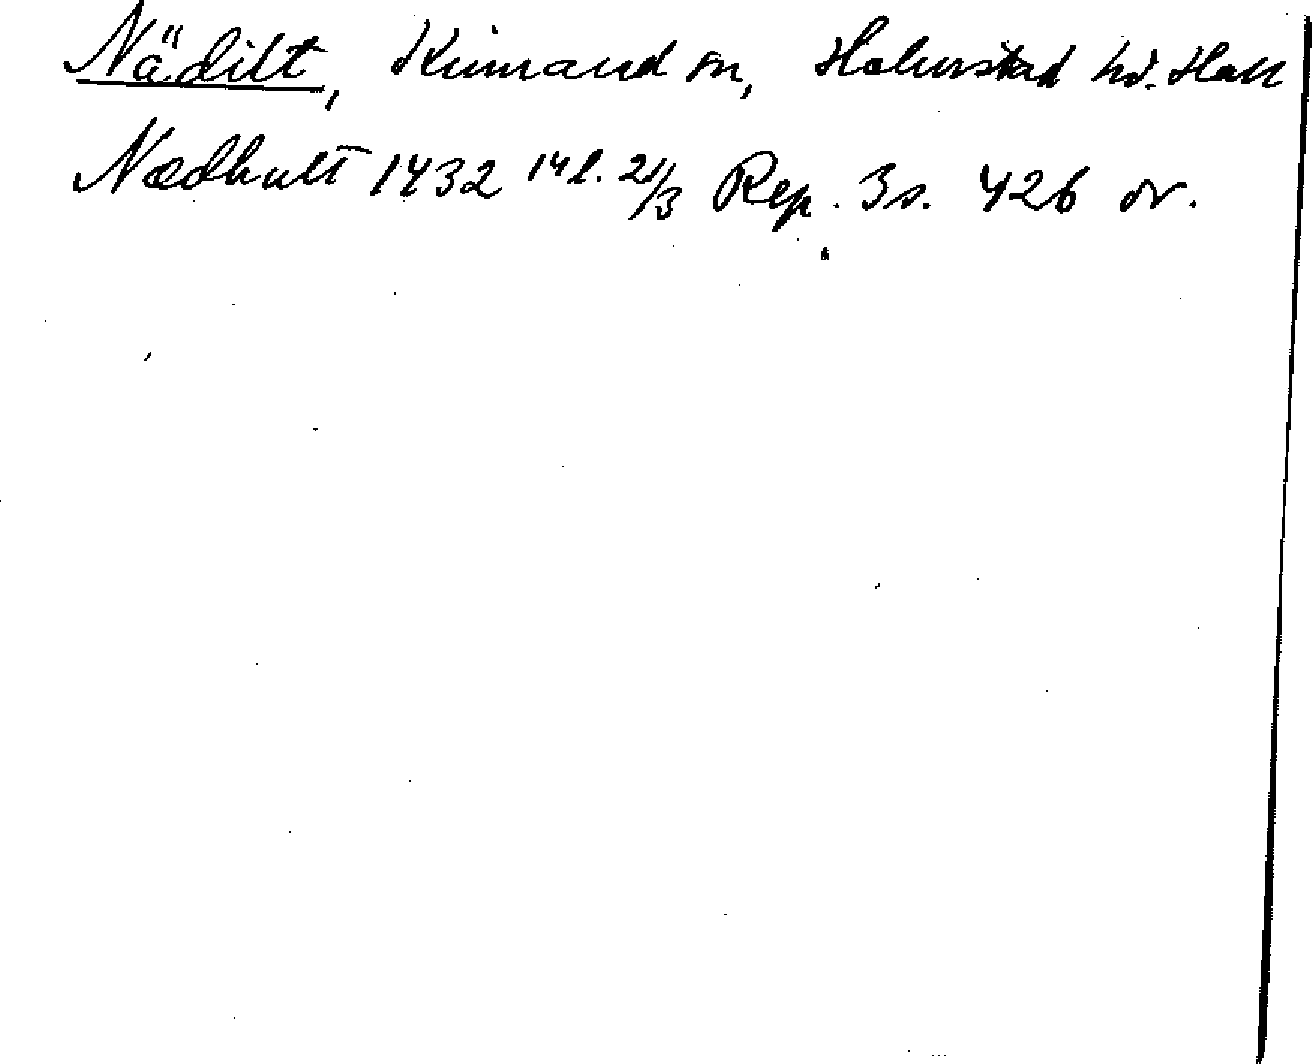 Nädilt, Kinnared sn, Halmstad hd. Hall
Nædhult 1432 14l. 21/3 Rep. 3 s. 426 or.